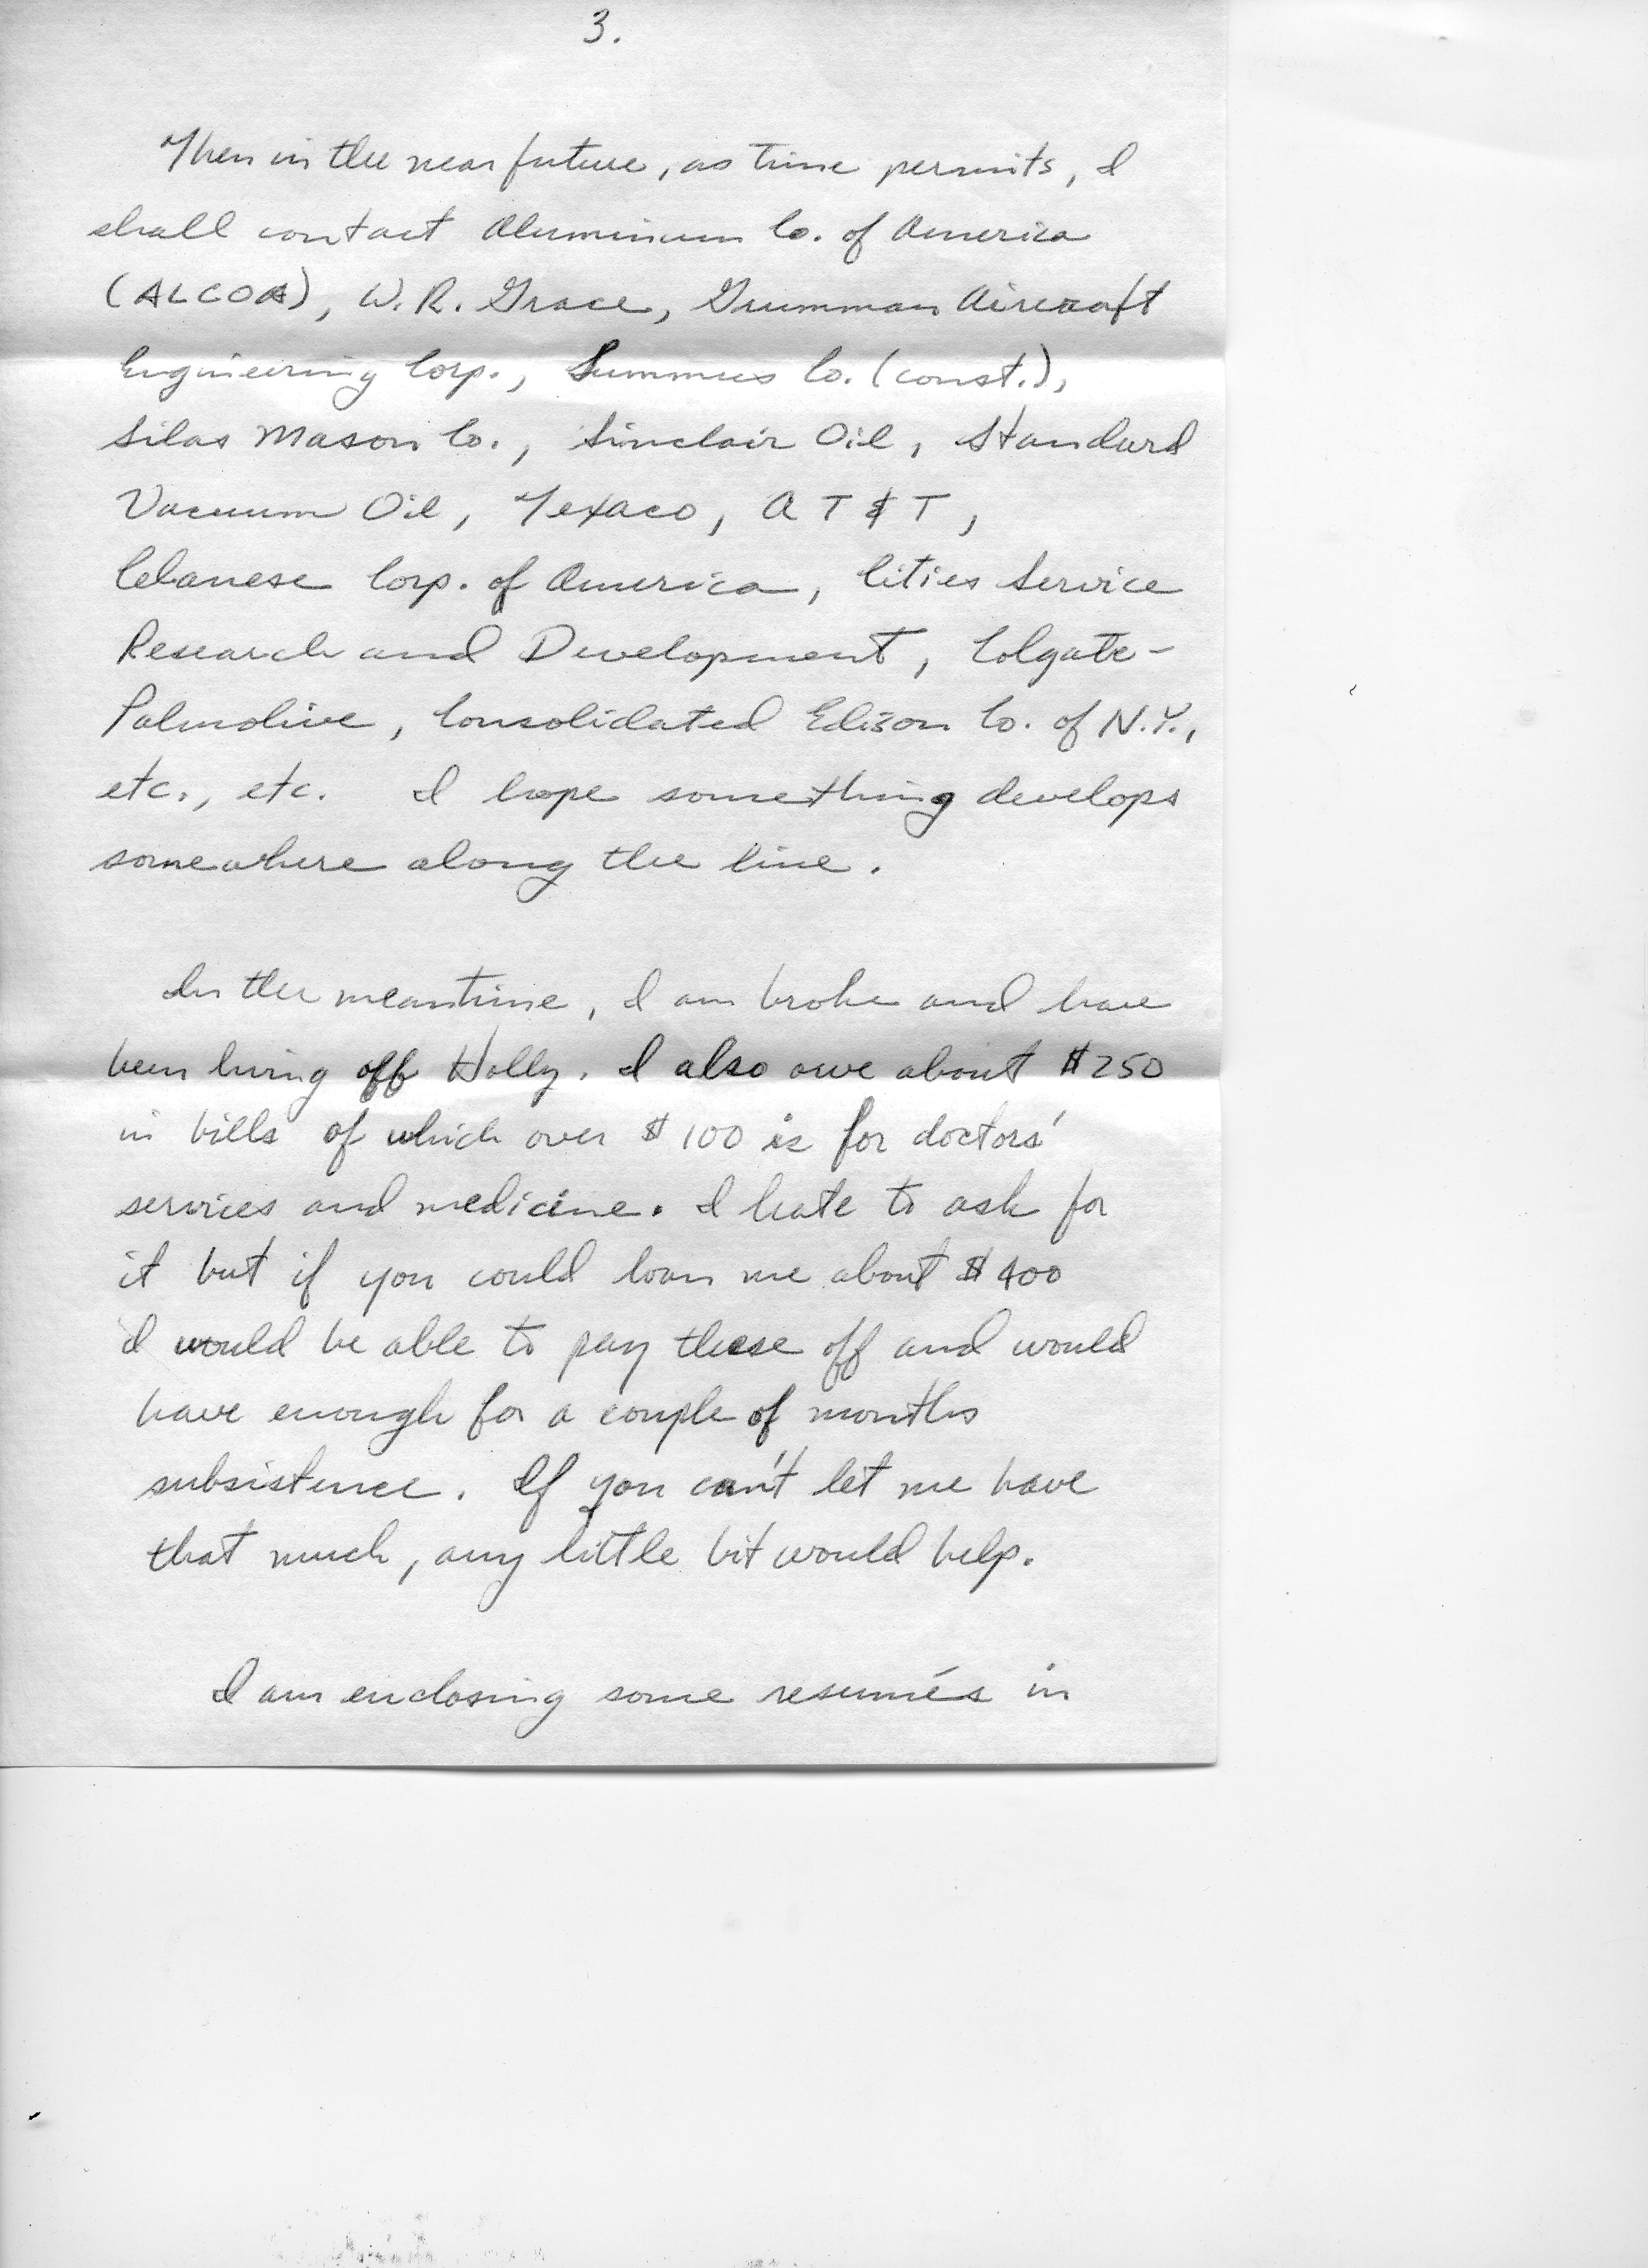 3.
Then in the near future, as time permits, I
shall contact Aluminum Co. of America
(ALCOA), W. R. Grace, Grumman Aircraft
Engineering Corp., Summus Co. (const.),
Silas Mason Co., Sinclair Oil, Standard
Vacuum Oil, Texaco, AT&T,
Celanese Corp. of America, Cities Service
Research and Development, Colgate-
Palmolive, Consolidated Edison Co. of N.Y.,
etc., etc. I hope something develops
somewhere along the line.
In the meantime, I am broke and have
been living off Holly. I also owe about $250
in bills of which over $100 is for doctors'
services and medicine. I hate to ask for
it but if you could loan me about $400
I would be able to pay these off and would
have enough for a couple of months
subsistence. If you can't let me have
that much, any little bit would help.
I am enclosing some resumés in